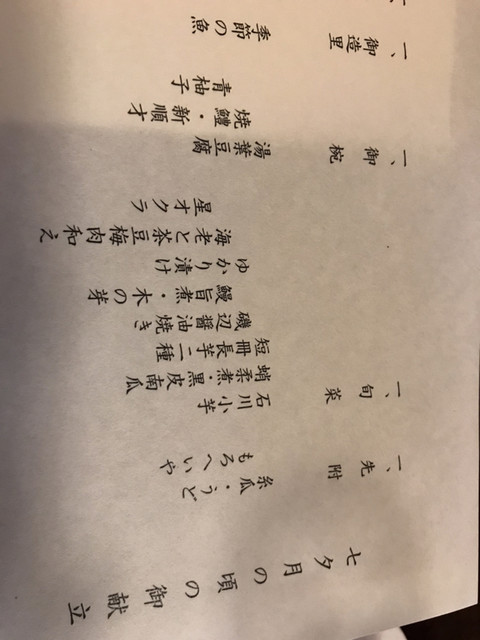 七夕月の頃の御献立
一、先附 糸瓜・うど
もろへいや
一、旬菜 石川小芋
蛸柔煮・黒皮南瓜
短冊長芋二種
磯辺醤油焼き
鰻旨煮・木の芽
ゆかり漬け
海老と茶豆梅肉和え
星オクラ
一、御椀 湯葉豆腐
焼鱧・新順才
青柚子
一、御造里 季節の魚